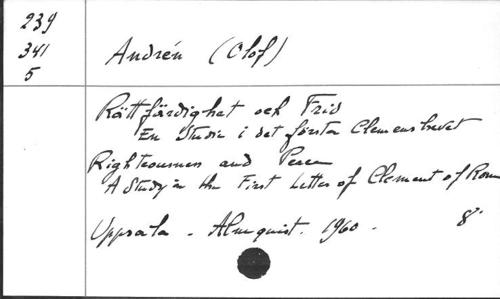 239
341
5
Andrén (Olof)
Rättfärdighet och Frid
En Studie i det första Clemensbrevet
Righteousness and Peace
A Study in the First Letter of Clement of Rome
Uppsala - Almquist. 1960. 8°